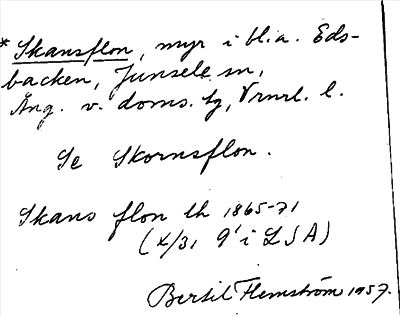 * Skansflon, myr i bl.a. Eds-
backen, Junsele sn,
Ång. v. doms. tg, Vrnrl. l.
Se Skornsflon.
Skans flon lh 1865-71
(X/31 9' i LSA)
Bertil Flemström 1957.